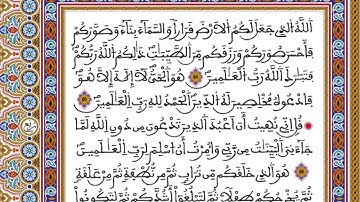 اَ۬للَّهُ اُ۬لذِے جَعَلَ لَكُمُ اُ۬لَارْضَ قَرَاراٗ وَالسَّمَآءَ بِنَآءٗ وَصَوَّرَكُمْ
فَأَحْسَنَ صُوَرَكُمْ وَرَزَقَكُم مِّنَ اَ۬لطَّيِّبَٰتِۖ ذَٰلِكُمُ اُ۬للَّهُ رَبُّكُمْۖ
فَتَبَٰرَكَ اَ۬للَّهُ رَبُّ اُ۬لْعَٰلَمِينَۖ هُوَ اَ۬لْحَيُّ لَآ إِلَٰهَ إِلَّا هُوَۖ
فَادْعُوهُ مُخْلِصِينَ لَهُ اُ۬لدِّينَۖ اَ۬لْحَمْدُ لِلهِ رَبِّ اِ۬لْعَٰلَمِينَۖ
قُلِ اِنِّے نُهِيتُ أَنَ اَعْبُدَ اَ۬لذِينَ تَدْعُونَ مِن دُونِ اِ۬للَّهِ لَمَّا
جَآءَنِيَ اَ۬لْبَيِّنَٰتُ مِن رَّبِّے وَأُمِرْتُ أَنُ ا۟سْلِمَ لِرَبِّ اِ۬لْعَٰلَمِينَۖ
هُوَ اَ۬لذِے خَلَقَكُم مِّن تُرَابٖ ثُمَّ مِن نُّطْفَةٖ ثُمَّ مِنْ عَلَقَةٖ
ثُمَّ يُخْرِجُكُمْ طِفْلاٗ ثُمَّ لِتَبْلُغُوٓاْ أَشُدَّكُمْ ثُمَّ لِتَكُونُواْ